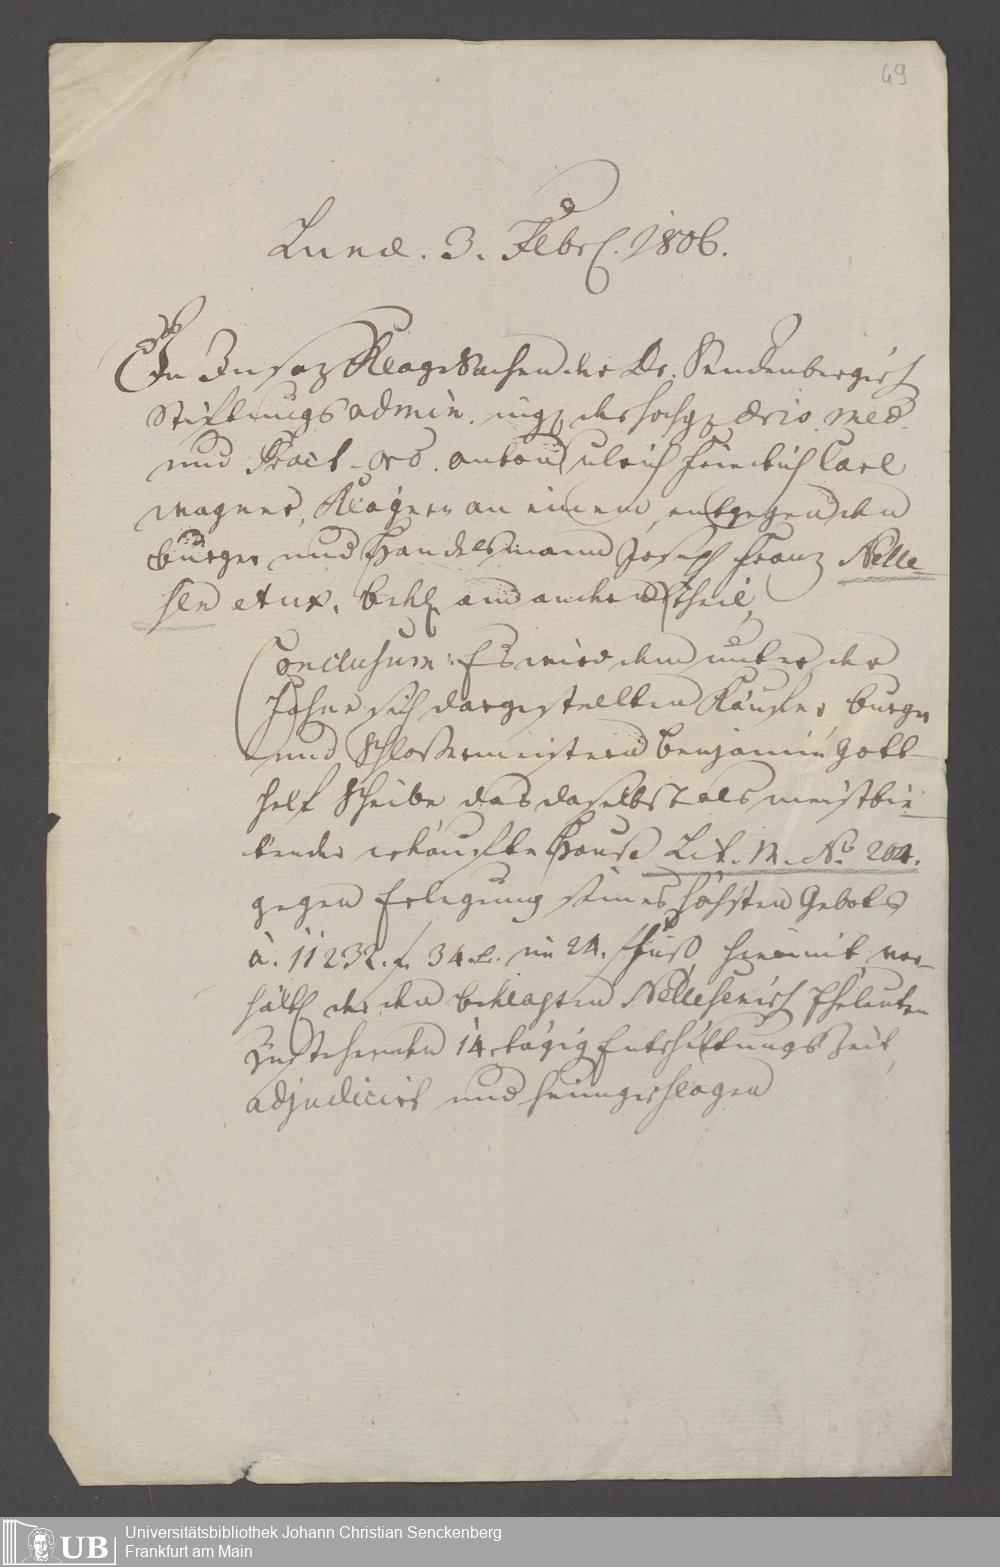 69
Lunæ. 3. Febr. 1806.
In Insaz Klag Sachen der Dr. Senckenbergisch
Stiftungs admin. des hochg. Dris. med.
und Pract. ord. Anton Ulrich Friedrich Carl
Wagner, Klägern an einem, entgegen den
burger und Handelsmann Joseph Franz Nelle
sen et ux. bekl. am andern Theil,
Conclusum: Es wird dem unter der
Fahne sich dargestellten Käufer, burger
und Schlossermeistern Benjamin Gott-
helf Scheibe das daselbst als meistbie
tender erkaufte Haus Lit. M. No. 204.
gegen Erlegung seines höchsten Gebots
à. 11232. f. 34. kr. im 24. f fuß hiermit vor-
hältl. der den beklagten Nellesenisch Eheleuten
zustehenden 14. tägig Entschüttungs Zeit,
adjudicirt und heimgeschlagen
UB
Universitätsbibliothek Johann Christian Senckenberg
Frankfurt am Main